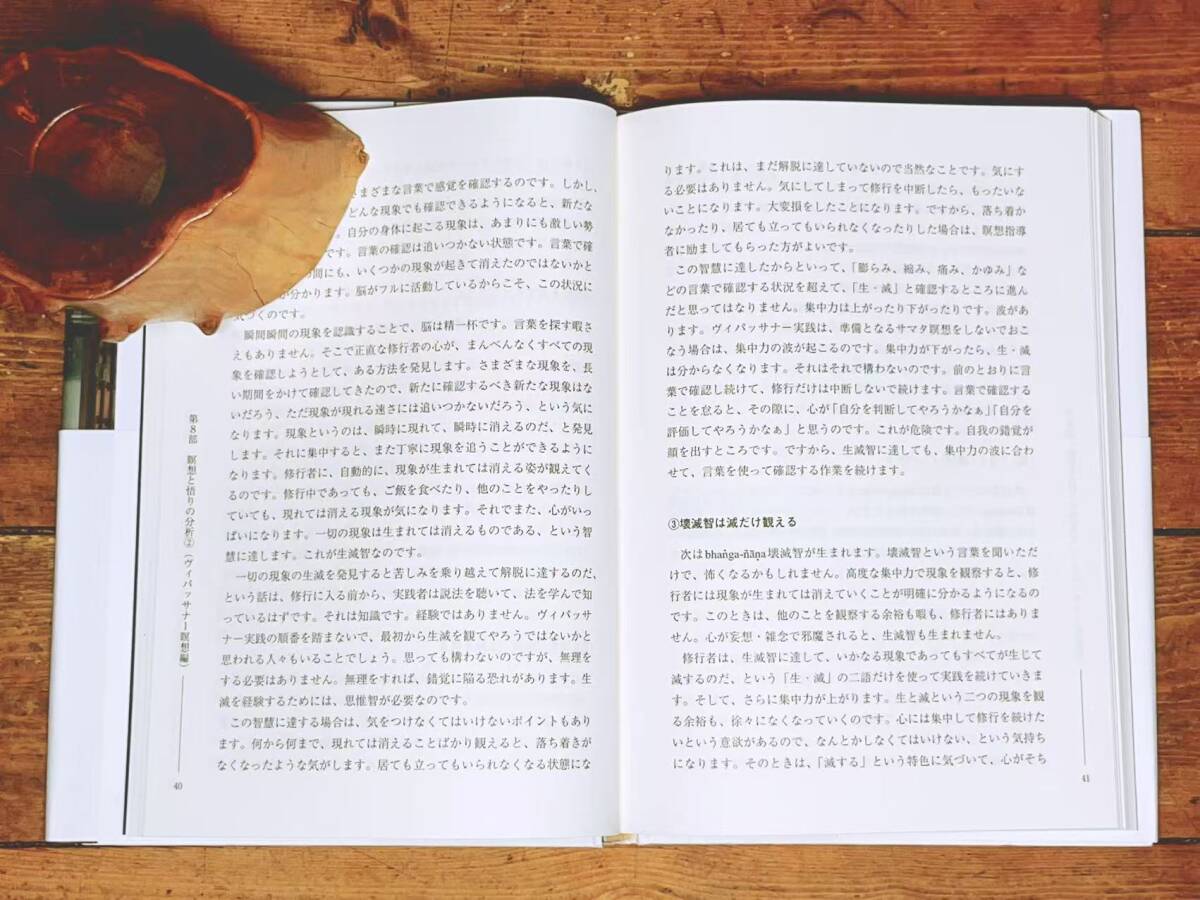 さまざまな言葉で感覚を確認するのです。しかし、
どんな現象でも確認できるようになると、新たな
。自分の身体に起こる現象は、あまりにも激しい勢
です。言葉の確認は追いつかない状態です。言葉で確
の間にも、いくつかの現象が起きて消えたのではないかと
が分かります。脳がフルに活動しているからこそ、この状況に
気づくのです。
瞬間瞬間の現象を認識することで、脳は精一杯です。言葉を探す暇さ
えもありません。そこで正直な修行者の心が、まんべんなくすべての現
象を確認しようとして、ある方法を発見します。さまざまな現象を、長
い期間をかけて確認してきたので、新たに確認するべき新たな現象はな
いだろう、ただ現象が現れる速さには追いつかないだろう、という気に
なります。現象というのは、瞬時に現れて、瞬時に消えるのだ、と発見
します。それに集中すると、また丁寧に現象を追うことができるように
なります。修行者に、自動的に、現象が生まれては消える姿が観えてく
るのです。修行中であっても、ご飯を食べたり、他のことをやったりし
ていても、現れては消える現象が気になります。それでまた、心がいっ
ぱいになります。一切の現象は生まれては消えるものである、という智
慧に達します。これが生滅智なのです。
一切の現象の生滅を発見すると苦しみを乗り越えて解脱に達するのだ、
という話は、修行に入る前から、実践者は説法を聴いて、法を学んで知
っているはずです。それは知識です。経験ではありません。ヴィパッサ
ナー実践の順番を踏まないで、最初から生滅を観てやろうではないかと
思われる人々もいることでしょう。思っても構わないのですが、無理を
する必要はありません。無理をすれば、錯覚に陥る恐れがあります。生
滅を経験するためには、思惟智が必要なのです。
この智慧に達する場合は、気をつけなくてはいけないポイントもあり
ます。何から何まで、現れては消えることばかり観えると、落ち着きが
なくなったような気がします。居ても立ってもいられなくなる状態にな
第8部 瞑想と悟りの分析②（ヴィパッサナー瞑想編）
40
ります。これは、まだ解脱に達していないので当然なことです。気にす
る必要はありません。気にしてしまって修行を中断したら、もったいな
いことになります。大変損をしたことになります。ですから、落ち着か
なかったり、居ても立ってもいられなくなったりした場合は、瞑想指導
者に励ましてもらった方がよいです。
この智慧に達したからといって、「膨らみ、縮み、痛み、かゆみ」な
どの言葉で確認する状況を超えて、「生・滅」と確認するところに進ん
だと思ってはなりません。集中力は上がったり下がったりです。波があ
ります。ヴィパッサナー実践は、準備となるサマタ瞑想をしないでおこ
なう場合は、集中力の波が起こるのです。集中力が下がったら、生・滅
は分からなくなります。それはそれで構わないのです。前のとおりに言
葉で確認し続けて、修行だけは中断しないで続けます。言葉で確認する
ことを怠ると、その隙に、心が「自分を判断してやろうかなぁ」「自分を
評価してやろうかなぁ」と思うのです。これが危険です。自我の錯覚が
顔を出すところです。ですから、生滅智に達しても、集中力の波に合わ
せて、言葉を使って確認する作業を続けます。
③壊滅智は滅だけ観える
次はbhaṅga-ñāṇa壊滅智が生まれます。壊滅智という言葉を聞いただ
けで、怖くなるかもしれません。高度な集中力で現象を観察すると、修
行者には現象が生まれては消えていくことが明確に分かるようになるの
です。このときは、他のことを観察する余裕も暇も、修行者にはありま
せん。心が妄想・雑念で邪魔されると、生滅智も生まれません。
修行者は、生滅智に達して、いかなる現象であってもすべてが生じて
滅するのだ、という「生・滅」の二語だけを使って実践を続けていきま
す。そして、さらに集中力が上がります。生と滅という二つの現象を観
る余裕も、徐々になくなっていくのです。心には集中して修行を続けた
いという意欲があるので、なんとかしなくてはいけない、という気持ち
になります。そのときは、「滅する」という特色に気づいて、心がそち
41